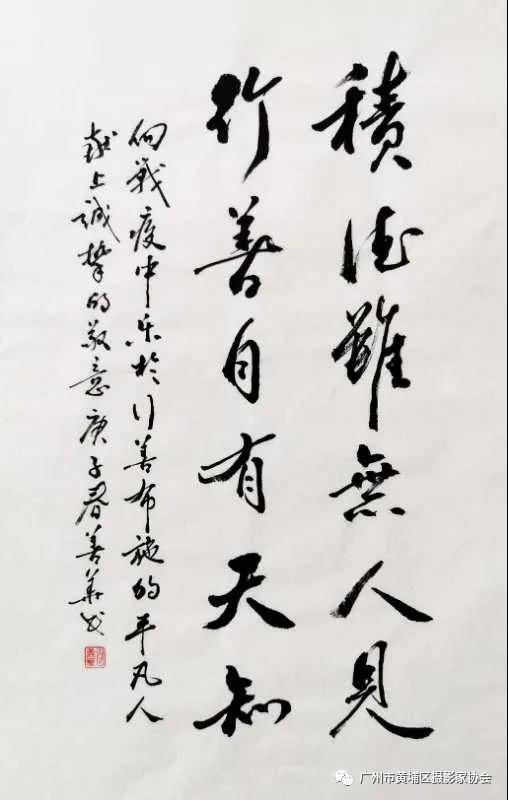 積德雖無人見
行善自有天知
向戰疫中乐於行善布施的平凡人
献上誠摯的敬意庚子春善華书
广州市黄埔区摄影家协会